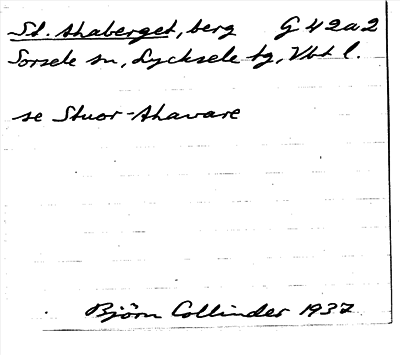 St. Ahaberget, berg G 42a2
Sorsele sn, Lycksele tg, Vbt l.
se Stuor-Ahavare
Björn Collinder 1937